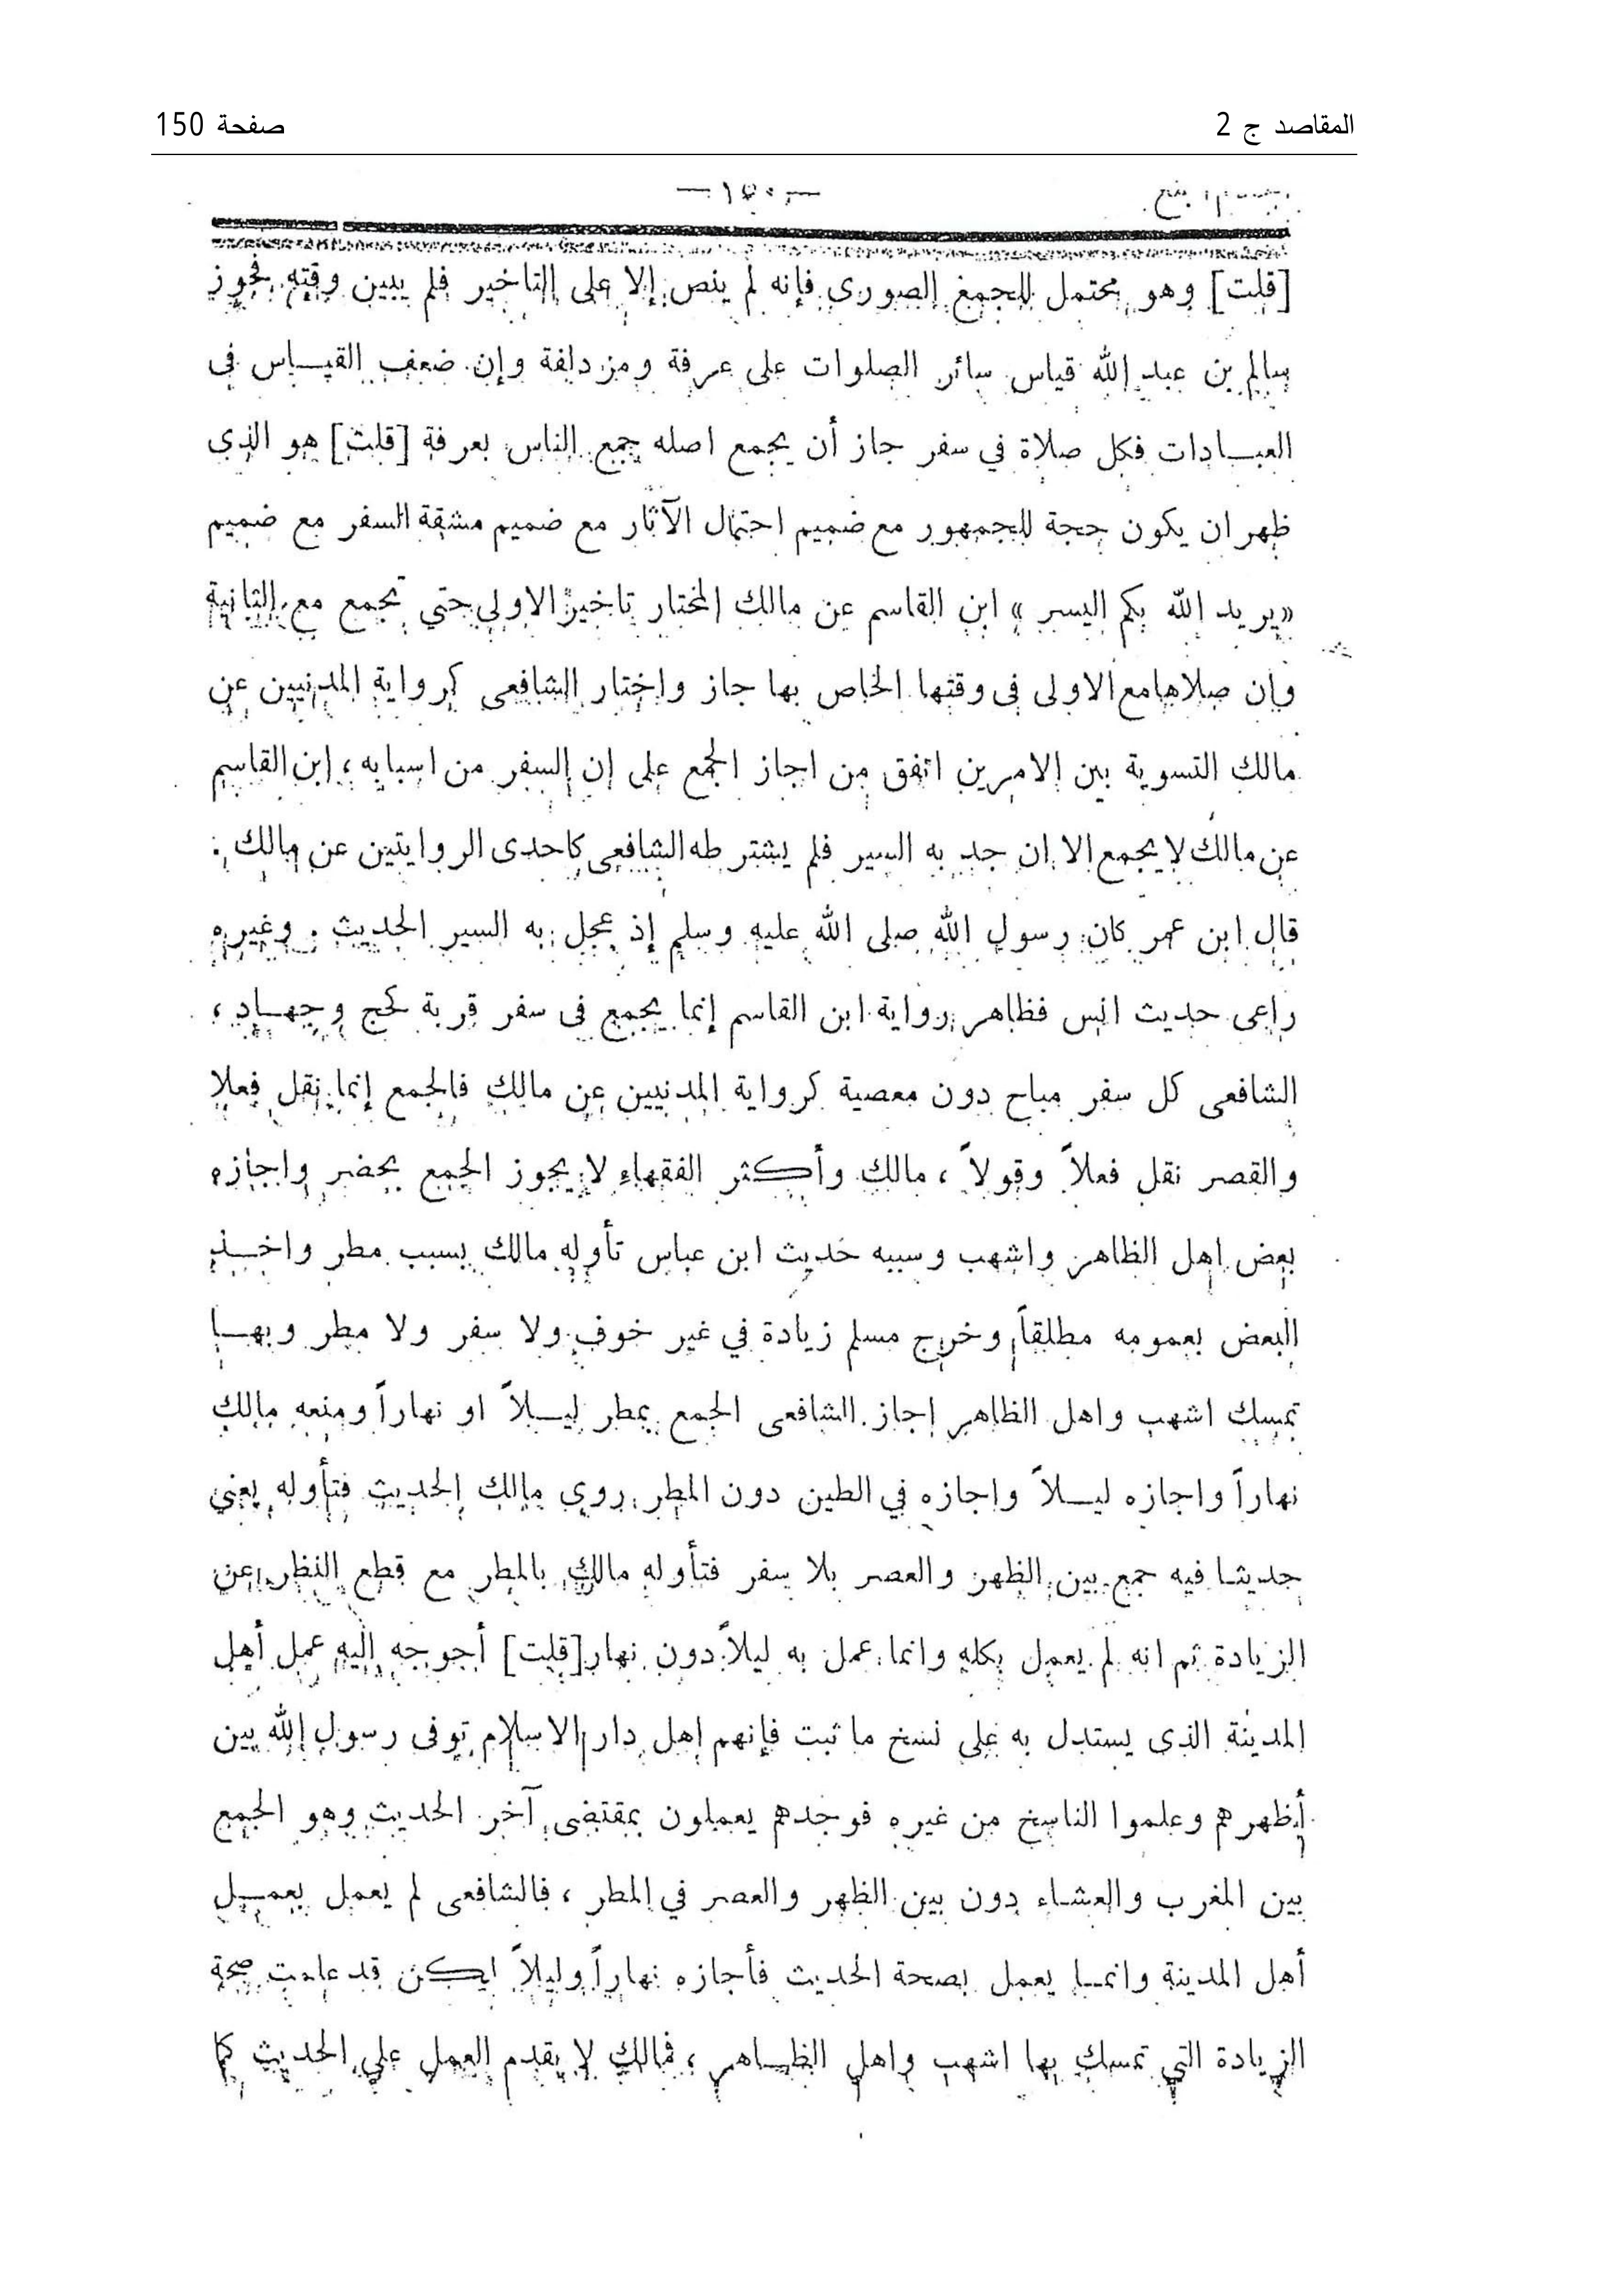 المقاصد ج 2
صفحة 150
— ١٥٠ —
[قلت] وهو محتمل للجمع الصورى فإنه لم ينص إلا على التاخير فلم يبين وقته فجوز
سالم بن عبد الله قياس سائر الصلوات على عرفة ومزدلفة وإن ضعف القيـاس فى
العبـادات فكل صلاة في سفر جاز أن يجمع اصله جمع الناس بعرفة [قلت] هو الذى
ظهر ان يكون حجة للجمهور مع ضميم احتمال الآثار مع ضميم مشقة السفر مع ضميم
«يريد الله بكم اليسر» ابن القاسم عن مالك المختار تاخير الاولى حتي تجمع مع الثانية
وإن صلاها مع الاولى فى وقتها الخاص بها جاز واختار الشافعى كرواية المدنيين عن
مالك التسوية بين الامرين اتفق من اجاز الجمع على ان السفر من اسبابه ، ابن القاسم
عن مالك لا يجمع الا ان جد به السير فلم يشترطه الشافعى كاحدى الروايتين عن مالك :
قال ابن عمر كان رسول الله صلى الله عليه وسلم إذ عجل به السير الحديث . وغيره
راعى حديث انس فظاهر رواية ابن القاسم إنما يجمع فى سفر قربة كحج وجهـاد ،
الشافعى كل سفر مباح دون معصية كرواية المدنيين عن مالك فالجمع إنما نقل فعلا
والقصر نقل فعلاً وقولاً ، مالك وأكثر الفقهاء لا يجوز الجمع بحضر واجازه
بعض اهل الظاهر واشهب وسببه حديث ابن عباس تأوله مالك بسبب مطر واخـذ
البعض بعمومه مطلقاً وخرج مسلم زيادة في غير خوف ولا سفر ولا مطر وبهـا
تمسك اشهب واهل الظاهر اجاز الشافعى الجمع بمطر ليـلاً او نهاراً ومنعه مالك
نهاراً واجازه ليـلاً واجازه في الطين دون المطر روى مالك الحديث فتأوله يعني
حديثـا فيه جمع بين الظهر والعصر بلا سفر فتأوله مالك بالمطر مع قطع النظر عن
الزيادة ثم انه لم يعمل بكله وانما عمل به ليلاً دون نهار [قلت] أحوجه اليه عمل أهل
المدينة الذى يستدل به على نسخ ما ثبت فإنهم اهل دار الاسلام توفى رسول الله بين
أظهرهم وعلموا الناسخ من غيره فوجدهم يعملون بمقتضى آخر الحديث وهو الجمع
بين المغرب والعشـاء دون بين الظهر والعصر في المطر ، فالشافعى لم يعمل بعمـل
أهل المدينة وانمـا يعمل بصحة الحديث فأجازه نهاراً وليلاً لكن قد علمت صحة
الزيادة التي تمسك بها اشهب واهل الظـاهر ، فمالك لا يقدم العمل على الحديث كما